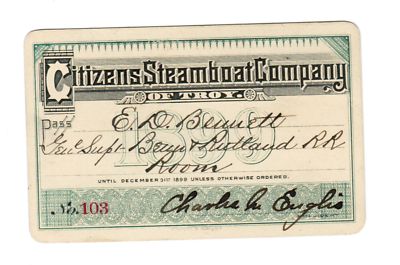 Citizens Steamboat Company
OF TROY.
Pass E. D. Bennett
1899
Gen'l Supt Benn & Rutland RR
Room
UNTIL DECEMBER 31ST 1899 UNLESS OTHERWISE ORDERED.
No. 103 Charles W. Englis